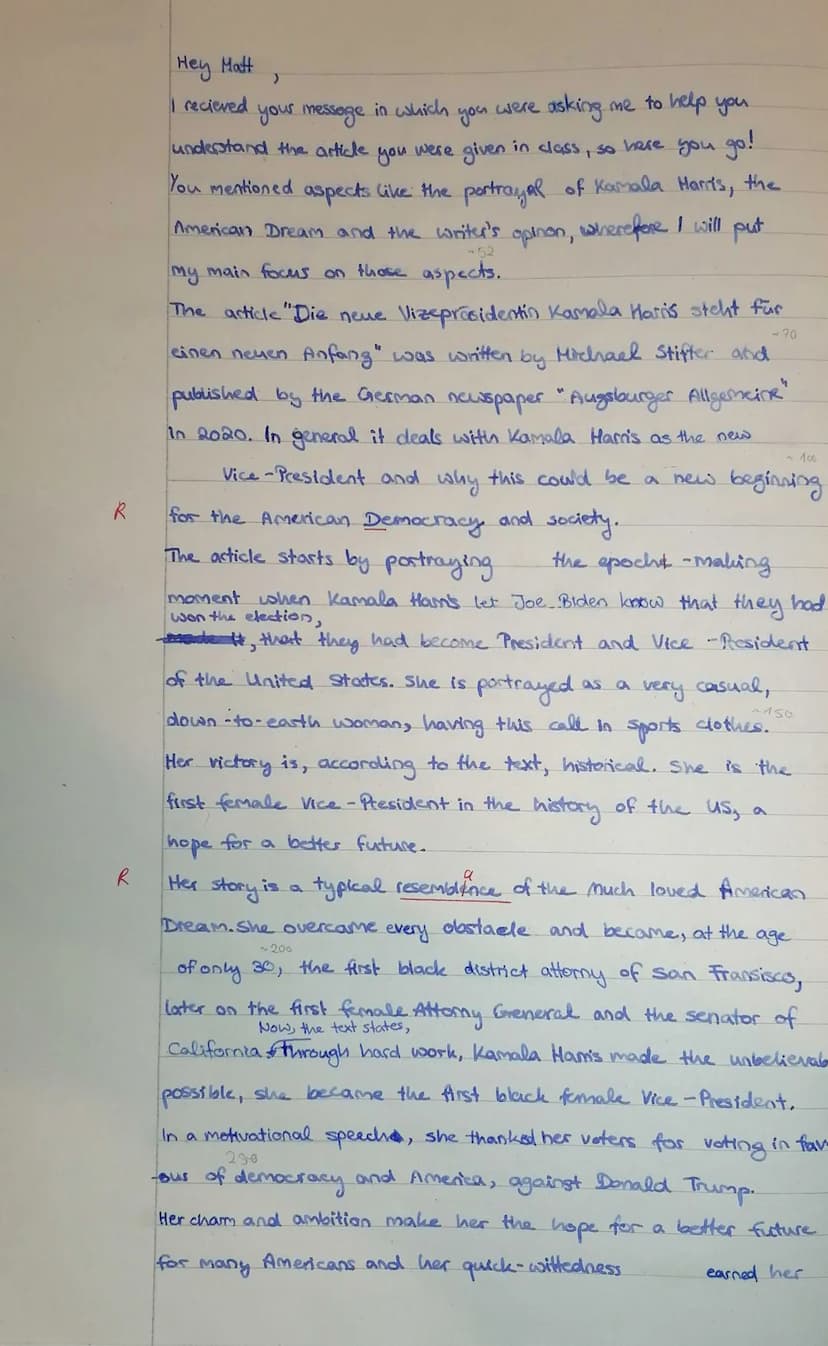 Hey Matt,
I recieved your message in which you were asking me to help you
understand the article you were given in class, so here you go!
You mentioned aspects like the portrayal of Kamala Harris, the
American Dream and the writer's opinon, wherefore I will put
~52
my main focus on those aspects.
The article "Die neue Vizepräsidentin Kamala Harris steht für
~70
einen neuen Anfang" was written by Michael Stifter and
published by the German newspaper "Augsburger Allgemeine"
in 2020. In general it deals with Kamala Harris as the new
~100
Vice-President and why this could be a new beginning
R for the American Democracy and society.
The article starts by portraying the epocht-making
moment when Kamala Harris let Joe Biden know that they had
won the election,
, that they had become President and Vice-President
of the United States. She is portrayed as a very casual,
~150
down-to-earth woman, having this call in sports clothes.
Her victory is, according to the text, historical. She is the
first female Vice-President in the history of the US, a
hope for a better future.
a
R Her story is a typical resemblence of the much loved American
Dream. She overcame every obstacle and became, at the age
~200
of only 30, the first black district attorny of San Fransisco,
later on the first female Attorny General and the senator of
Now, the text states,
California. Through hard work, Kamala Harris made the unbelievab
possible, she became the first black female Vice-President.
In a motivational speech, she thanked her voters for voting in fav
-our of democracy and America, against Donald Trump.
Her charm and ambition make her the hope for a better future
for many Americans and her quick-wittedness earned her